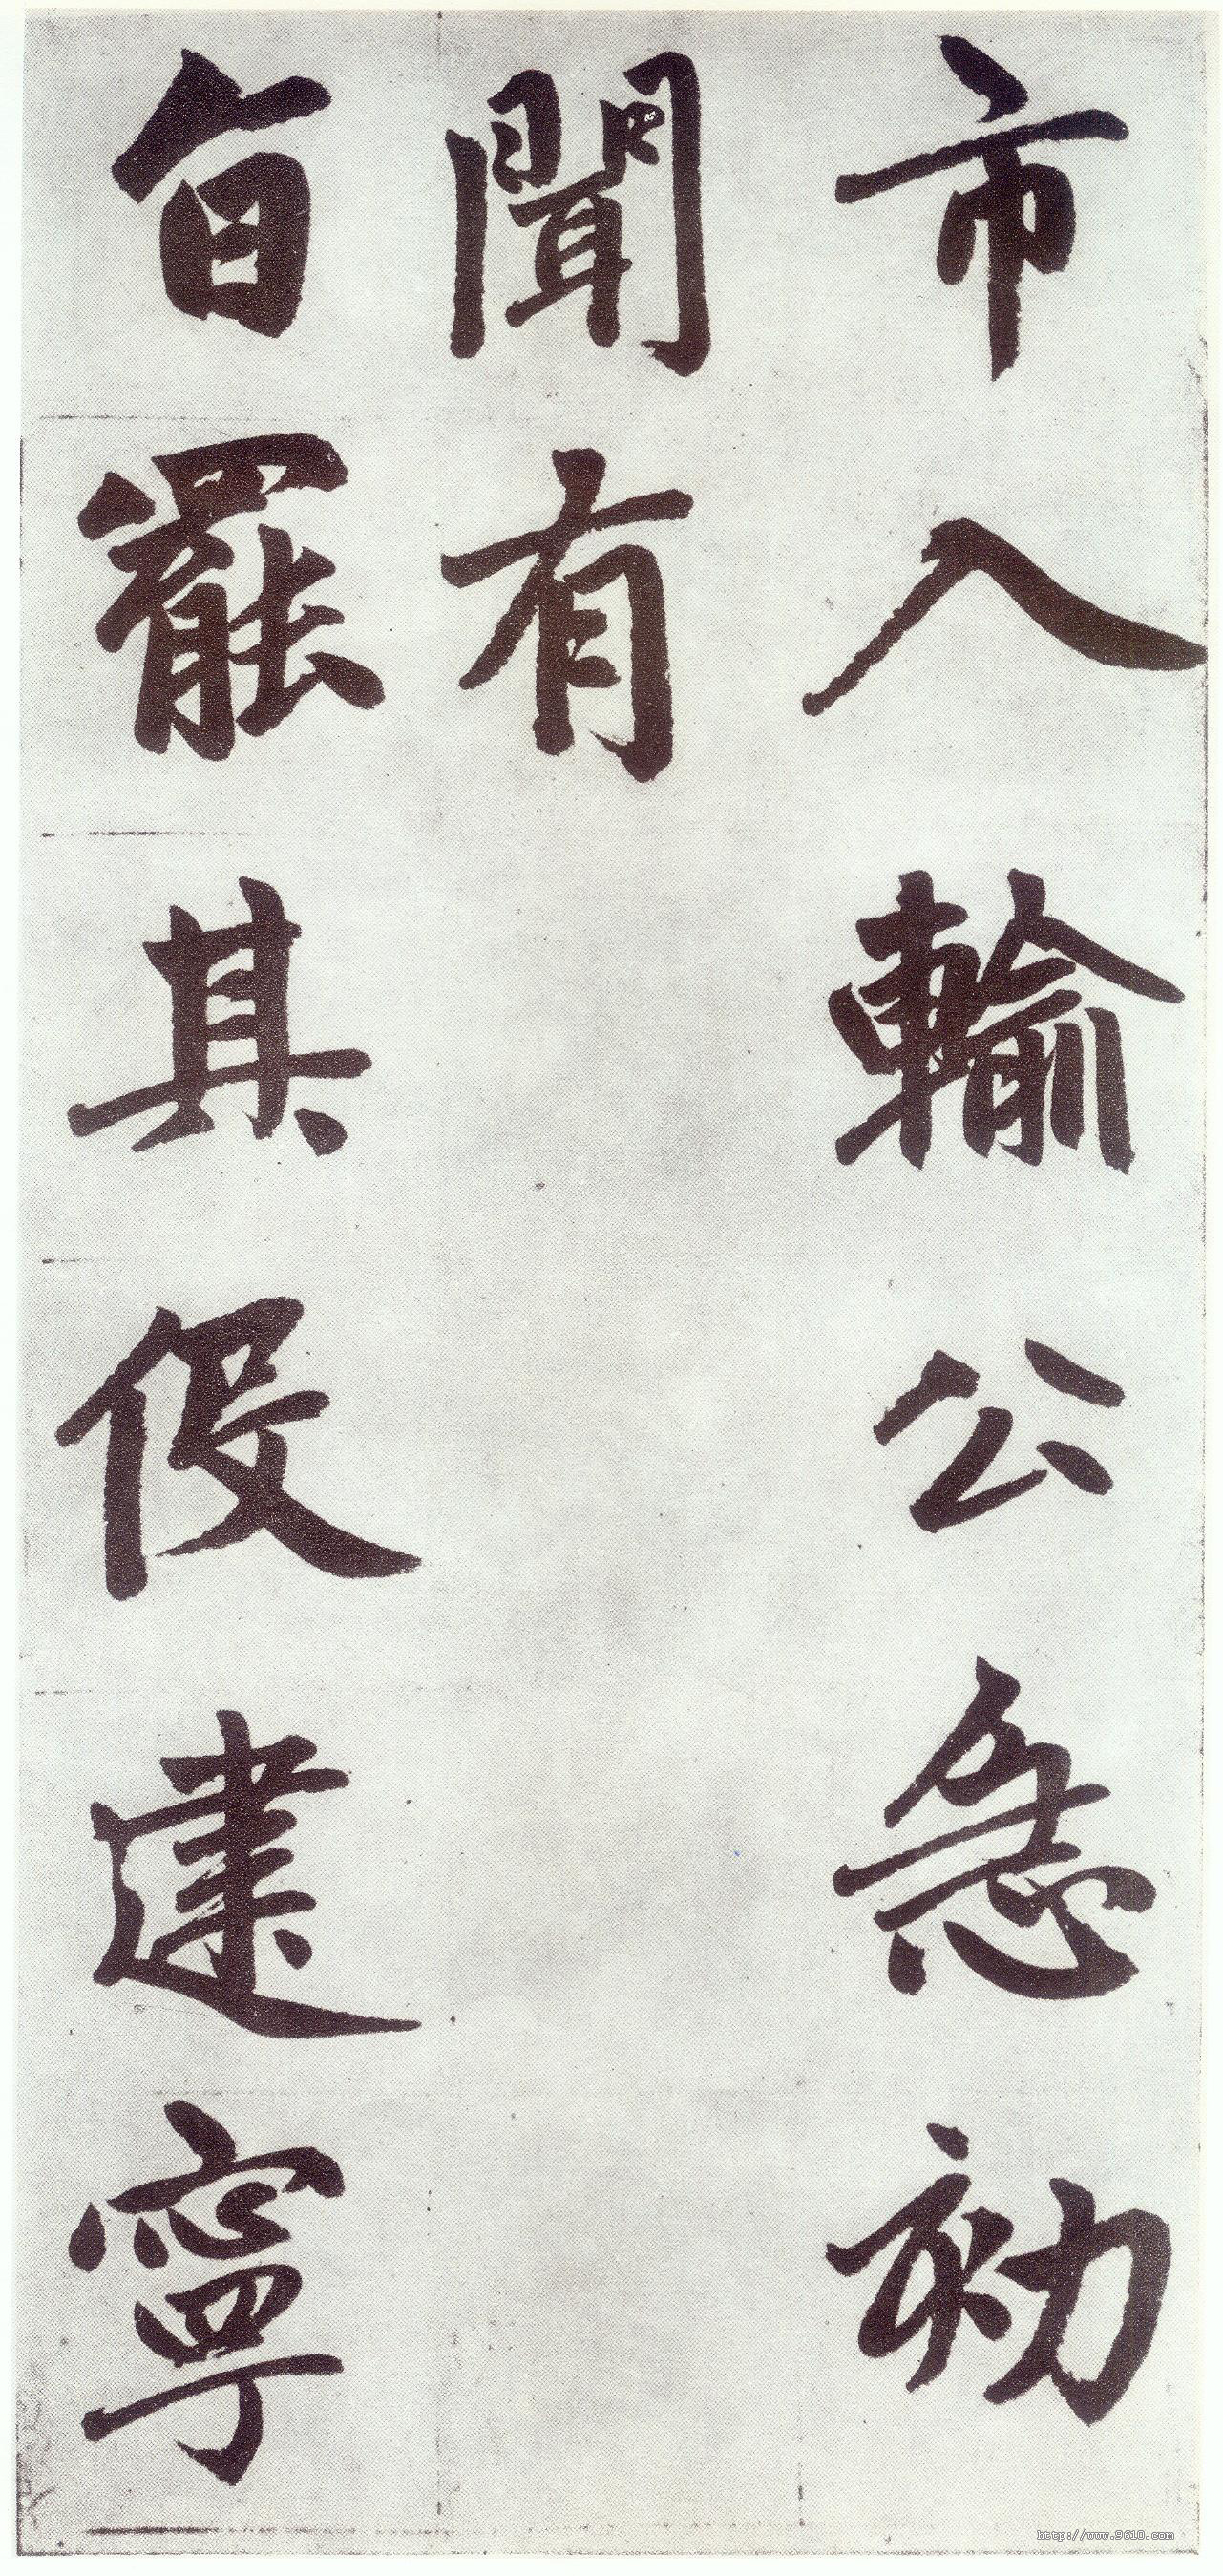 市入輸公急効
聞有
旨罷其役建寧
http://www.9610.com